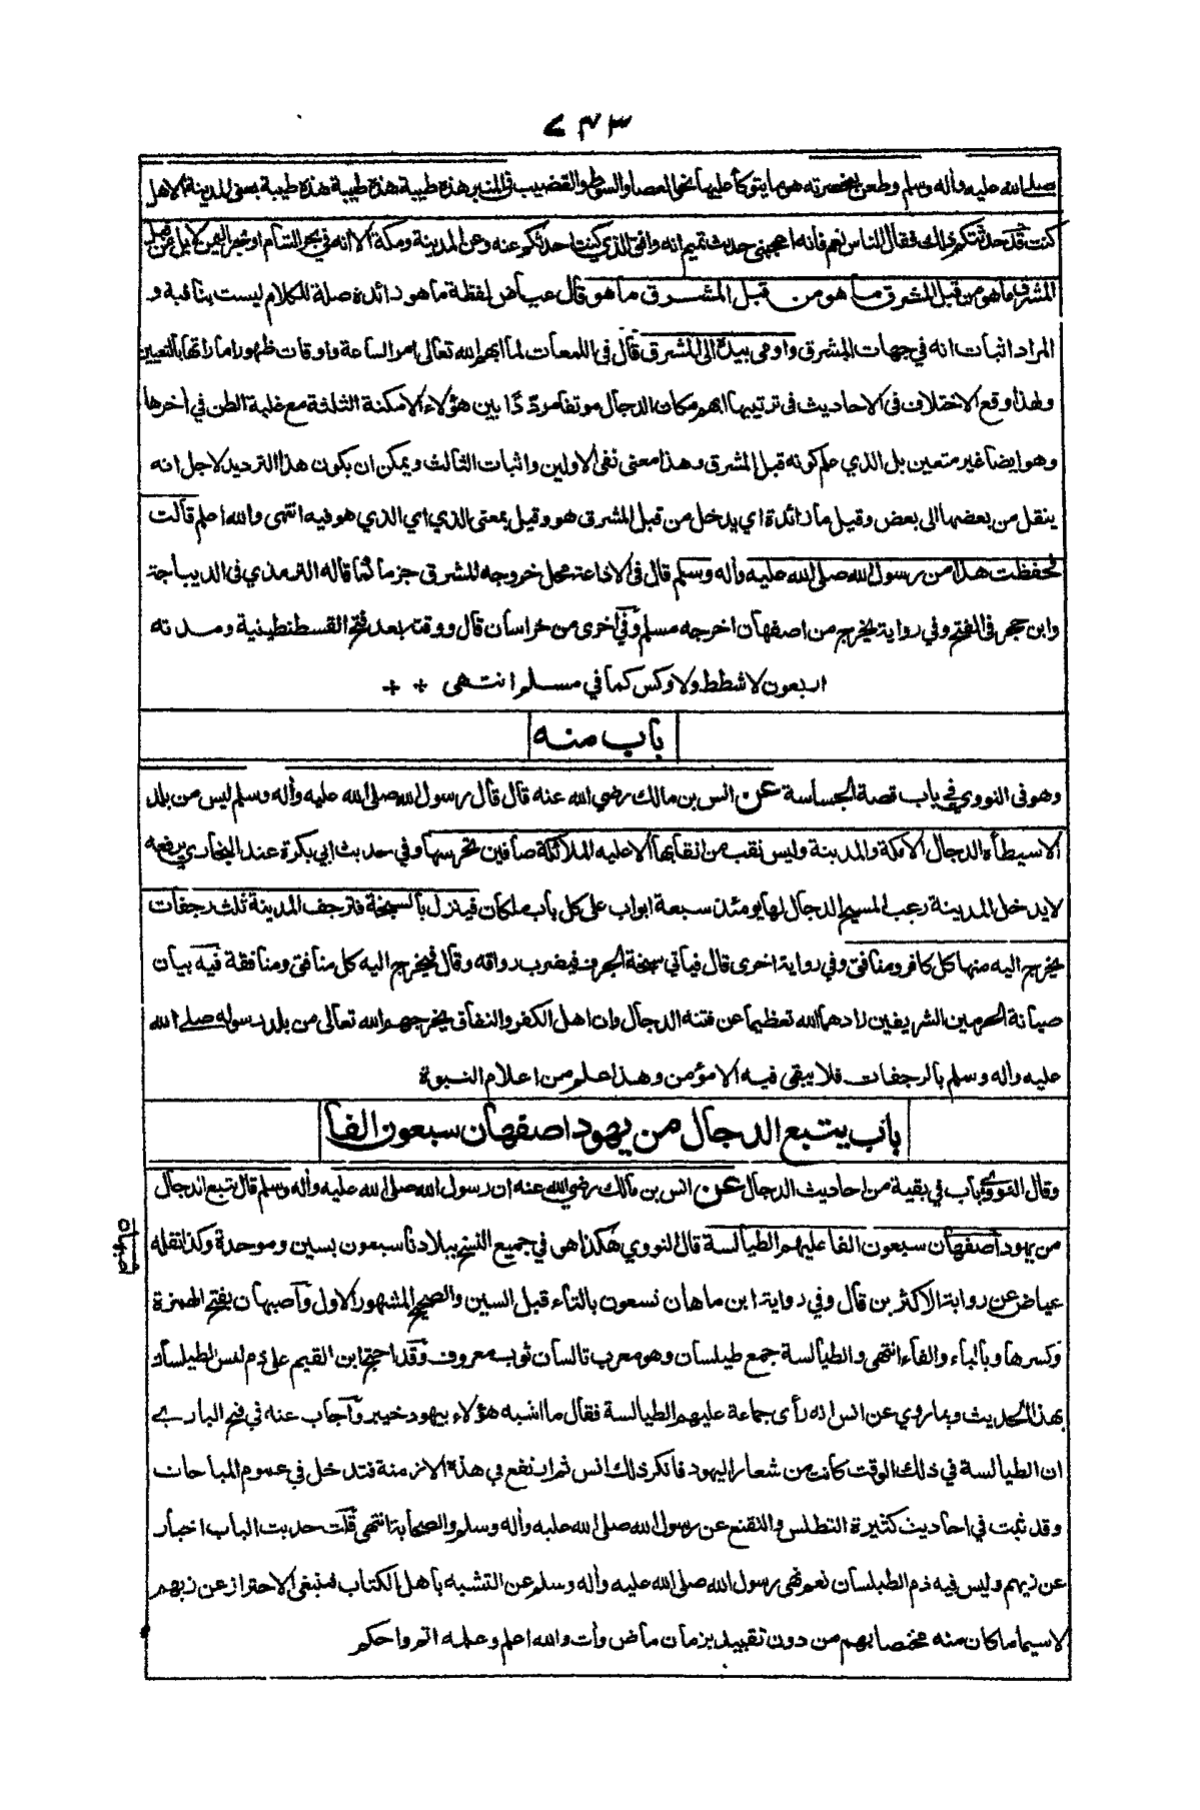 ٧٤٣
صلى الله عليه واٰله وسلم وطعن بمخصرته هو ما يتوكأ عليها نحو العصا والسوط والقضيب فى المنبر هذه طيبة هذه طيبة هذه طيبة يعنى المدينة الا هل
كنت قد حدثتكم ذلك فقال الناس نعم فانه اعجبنى حديث تميم انه وافق الذي كنت احدثكم عنه وعن المدينة ومكة الا انه في بحر الشام او بحر اليمن لا بل من قبل
المشرق ما هو من قبل المشرق ما هو من قبل المشرق ما هو قال عياض لفظة ما هو زائدة صلة للكلام ليست بنافية و
المراد اثبات انه في جهات المشرق واومى بيده الى المشرق قال فى اللمعات لما ابهم الله تعالى امر الساعة واوقات ظهور اماراتها بالتعيين
ولهذا وقع الاختلاف فى الاحاديث فى ترتيبها ابهم مكان الدجال موتفا مردّدًا بين هؤلاء الامكنة الثلثة مع غلبة الظن في اٰخرها
وهو ايضا غير متعين بل الذي علم كونه قبل المشرق وهذا معنى نفى الاولين واثبات الثالث ويمكن ان يكون هذا الترديد لاجل انه
ينقل من بعضها الى بعض وقيل ما زائدة اي يدخل من قبل المشرق هو وقيل بمعنى الذي اي الذي هو فيه انتهى والله اعلم قالت
فحفظت هذا من رسول الله صلى الله عليه واٰله وسلم قال فى الاذاعة محل خروجه المشرق جزما كما قاله الترمذي فى الديباجة
وابن حجر فى الفتح وفي رواية يخرج من اصفهان اخرجه مسلم وفي اخرى من خراسان قال ووقته بعد فتح القسطنطينية ومدته
اربعون لا شطط ولا وكس كما في مسلم انتهى + +
باب منه
وهو فى النووي في باب قصة الجساسة عن انس بن مالك رضي الله عنه قال قال رسول الله صلى الله عليه واٰله وسلم ليس من بلد
الا سيطأه الدجال الا مكة والمدينة وليس نقب من انقابها الا عليه الملائكة صافين تحرسها وفي حديث ابي بكرة عند البخاري يرفعه
لا يدخل المدينة رعب المسيح الدجال لها يومئذ سبعة ابواب على كل باب ملكان فينزل بالسبخة فترجف المدينة ثلث رجفات
يخرج اليه منها كل كافر ومنافق وفي رواية اخرى قال فيأتي سبخة الجرف فيضرب رواقه وقال فيخرج اليه كل منافق ومنافقة فيه بيان
صيانة الحرمين الشريفين زادهما الله تعظيما عن فتنة الدجال وان اهل الكفر والنفاق يخرجهم الله تعالى من بلد رسوله صلى الله
عليه واٰله وسلم بالرجفات فلا يبقى فيه الا مؤمن وهذا علم من اعلام النبوة
باب يتبع الدجال من يهود اصفهان سبعون الفا
وقال النووي باب في بقية من احاديث الدجال عن انس بن مالك رضي الله عنه ان رسول الله صلى الله عليه واٰله وسلم قال يتبع الدجال
من يهود اصفهان سبعون الفا عليهم الطيالسة قال النووي هكذا هى في جميع النسخ ببلادنا سبعون بسين وموحدة وكذا نقله
اصبهان
عياض عن رواية الاكثرين قال وفي رواية ابن ماهان تسعون بالتاء قبل السين والصحيح المشهور الاول واصبهان بفتح الهمزة
وكسرها وبالباء والفاء انتهى والطيالسة جمع طيلسان وهو معرب تالسان ثوب معروف وقد احتج ابن القيم على ذم لبس الطيلسان
بهذا الحديث وبما روي عن انس انه رأى جماعة عليهم الطيالسة فقال ما اشبه هؤلاء بيهود خيبر واجاب عنه في فتح الباري
ان الطيالسة في ذلك الوقت كانت من شعار اليهود فانكر ذلك انس ثم ارتفع في هذة الازمنة فتدخل في عموم المباحات
وقد ثبت في احاديث كثيرة التطلس والتقنع عن رسول الله صلى الله عليه واٰله وسلم والصحابة انتهى قلت حديث الباب اخبار
عن زيهم وليس فيه ذم الطيلسان نعم نهى رسول الله صلى الله عليه واٰله وسلم عن التشبه باهل الكتاب فينبغى الاحتراز عن زيهم
لا سيما ما كان منه مختصا بهم من دون تقييد بزمان ماض واٰت والله اعلم وعلمه اتم واحكم